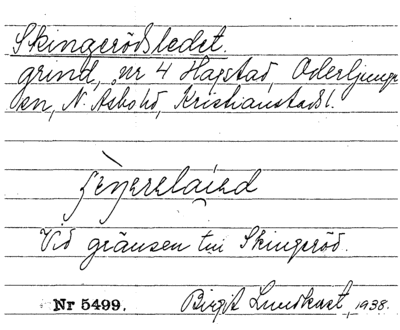 Skingerödsledet.
grind, nr 4 Hagstad, Oderljunga
sn, N. Åsbo hd, Kristianstads l.
Vid gränsen till Skingeröd.
Nr 5499. Birgit Lundkvist, 1938.